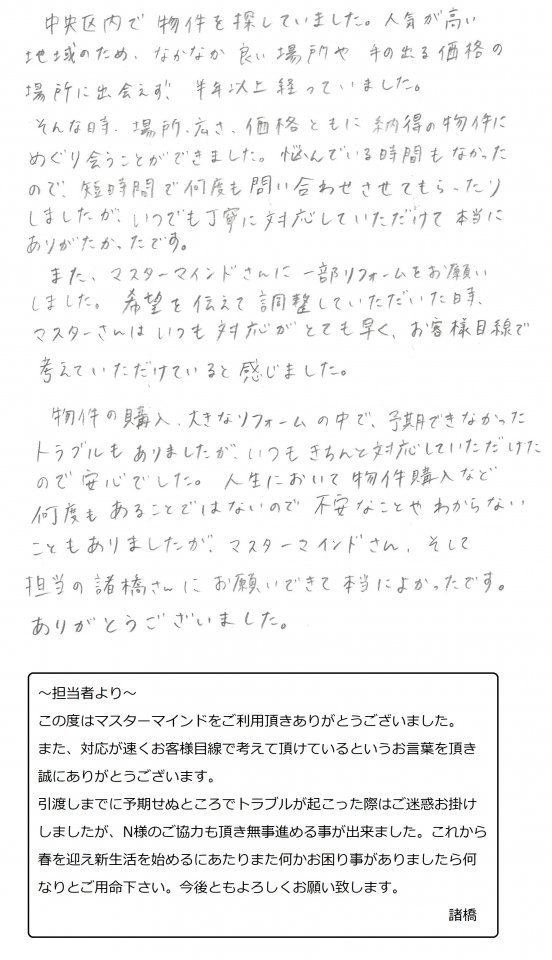 中央区内で物件を探していました。人気が高い
地域のため、なかなか良い場所や手の出る価格の
場所に出会えず、半年以上経っていました。
そんな時、場所、広さ、価格ともに納得の物件に
めぐり会うことができました。悩んでいる時間もなかった
ので、短時間で何度も問い合わせさせてもらったり
しましたが、いつでも丁寧に対応していただけて本当に
ありがたかったです。
また、マスターマインドさんに一部リフォームをお願い
しました。希望を伝えて調整していただいた時、
マスターさんはいつも対応がとても早く、お客様目線で
考えていただけていると感じました。
物件の購入、大きなリフォームの中で、予期できなかった
トラブルもありましたが、いつもきちんと対応していただけた
ので安心でした。人生において物件購入など
何度もあることではないので不安なことやわからない
こともありましたが、マスターマインドさん、そして
担当の諸橋さんにお願いできて本当によかったです。
ありがとうございました。
～担当者より～
この度はマスターマインドをご利用頂きありがとうございました。
また、対応が速くお客様目線で考えて頂けているというお言葉を頂き
誠にありがとうございます。
引渡しまでに予期せぬところでトラブルが起こった際はご迷惑お掛け
しましたが、N様のご協力も頂き無事進める事が出来ました。これから
春を迎え新生活を始めるにあたりまた何かお困り事がありましたら何
なりとご用命下さい。今後ともよろしくお願い致します。
諸橋